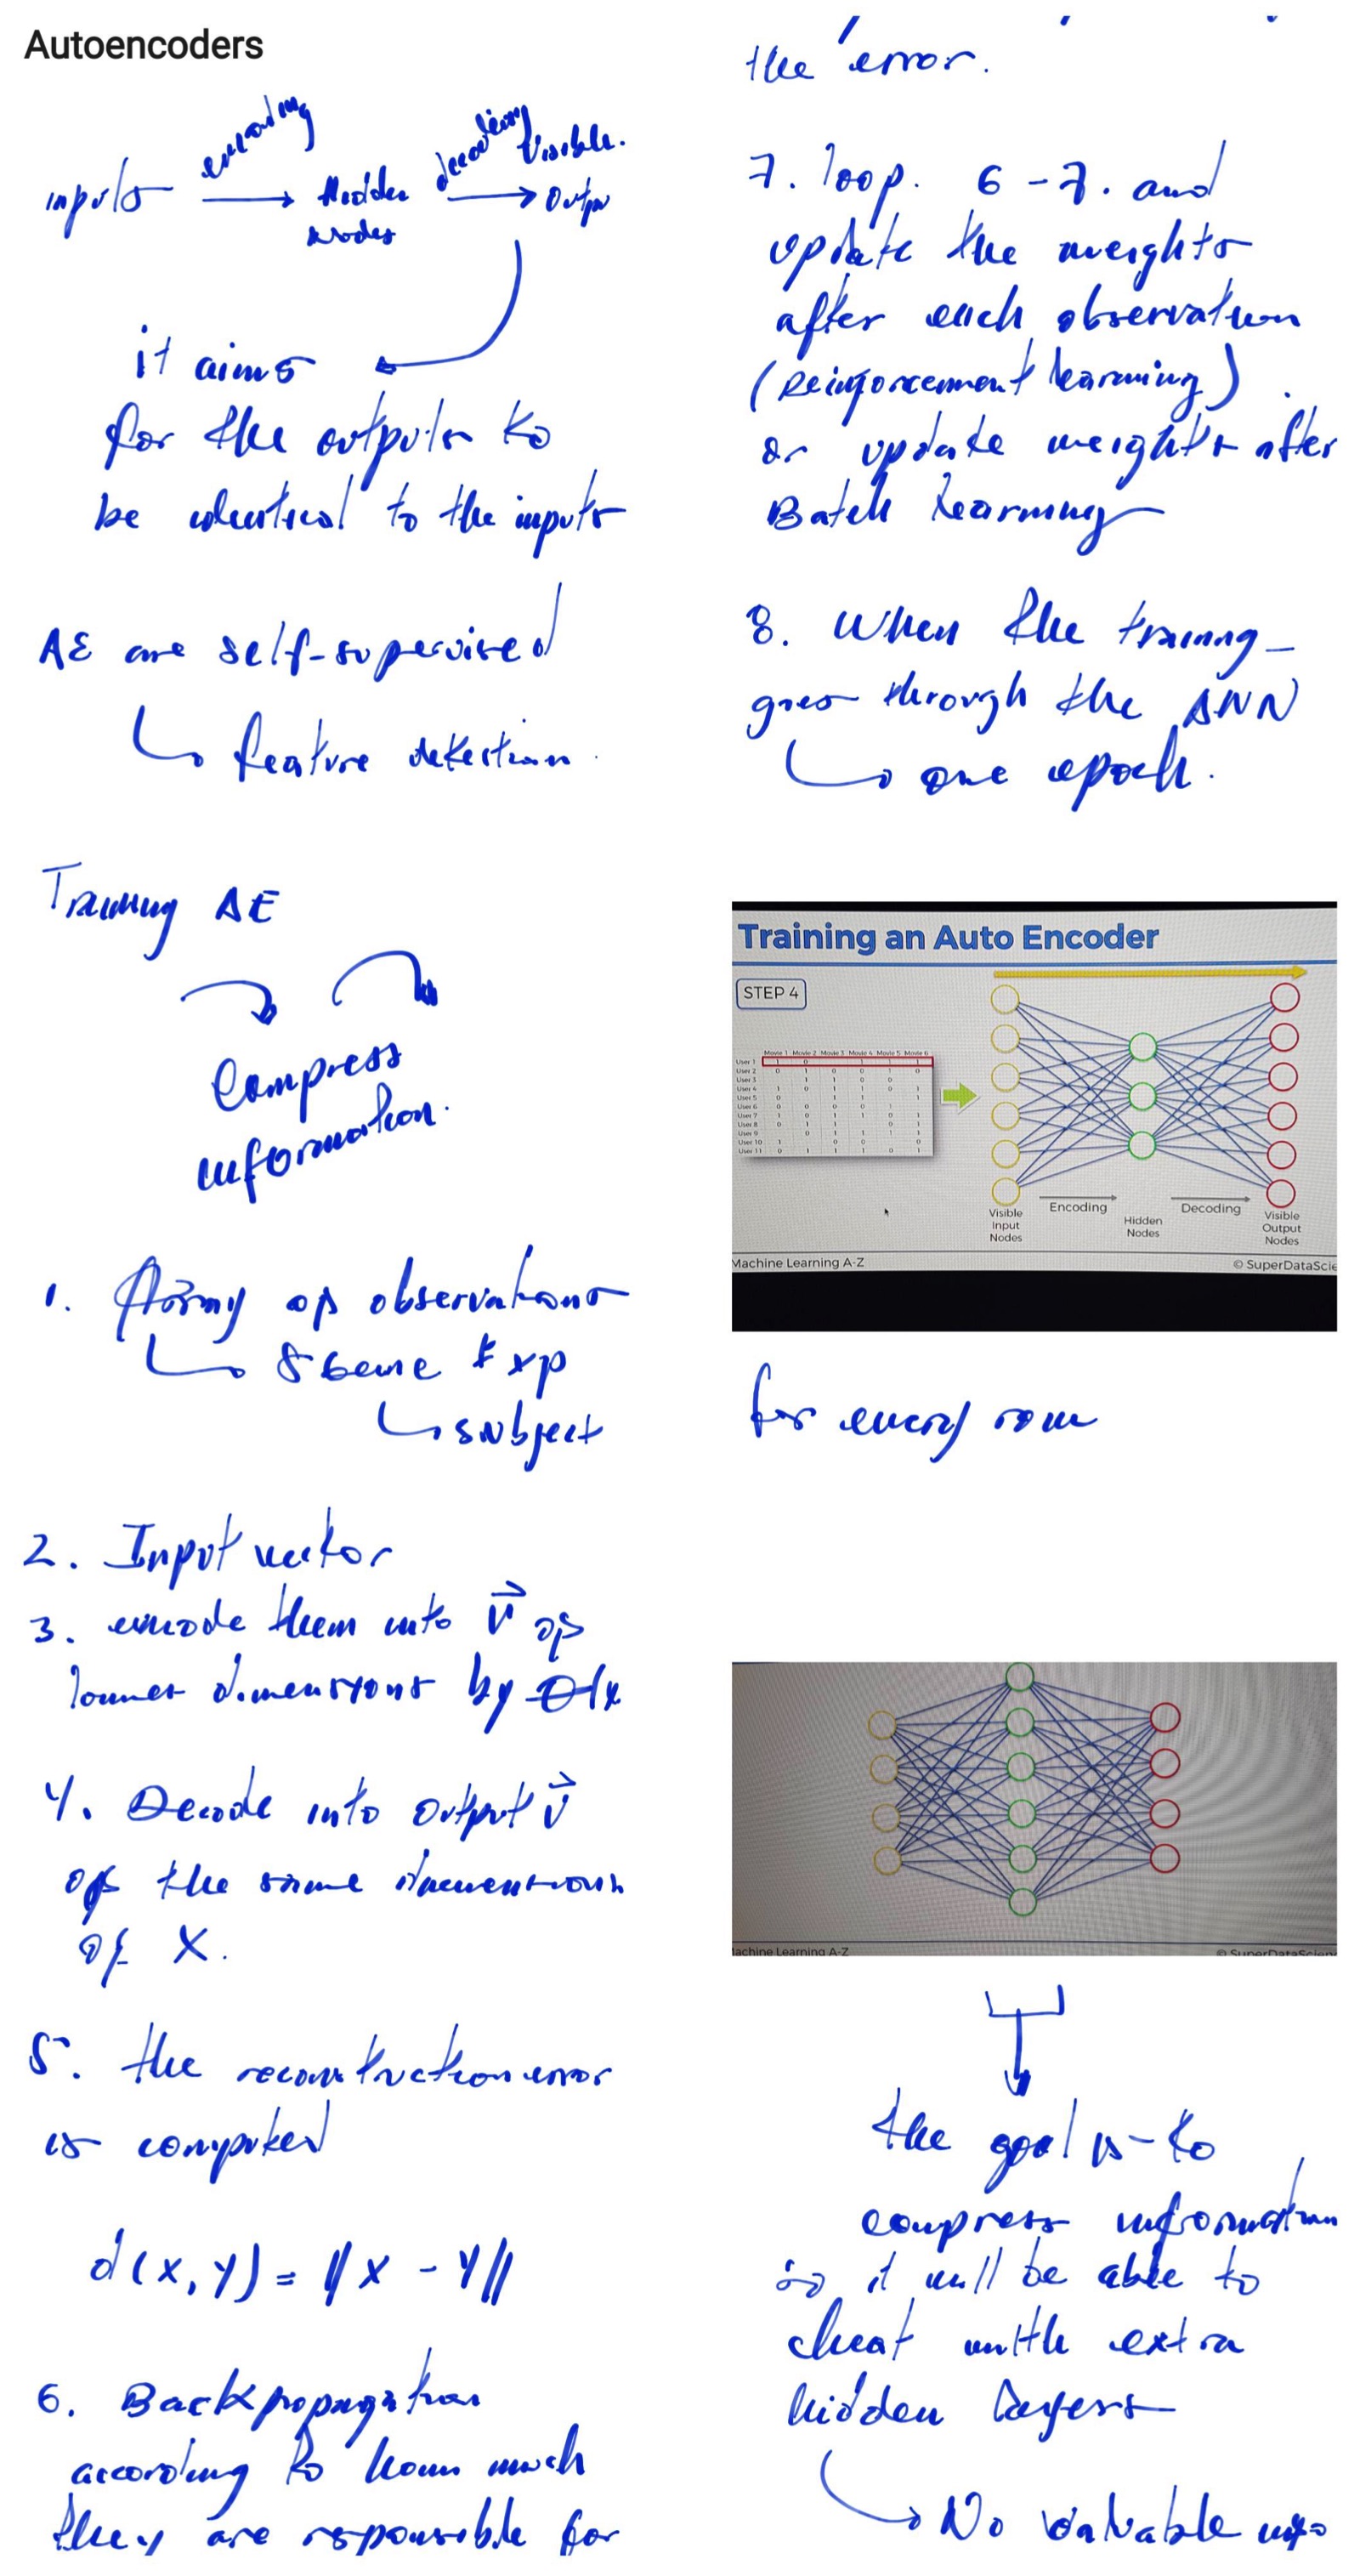 Autoencoders
encoding decoding Visible.
inputs → Hidden → Output
Nodes
it aims
for the outputs to
be identical to the inputs
AE are self-supervised
↳ feature detection.
Training AE
Compress
information.
1. Array of observations
↳ Exp
↳ subject
2. Input vector
3. encode them into v⃗ of
lower dimensions by
4. Decode into output v⃗
of the same dimensions
of X.
5. the reconstruction error
is computed
d(x, y) = ||x - y||
6. Backpropagation
according to how much
they are rsponsible for
the error.
7. loop. 6 - 7. and
update the weights
after each observation
(Reinforcement learning).
or update weights after
Batch Learning
8. When the training
goes through the ANN
↳ one epoch.
Training an Auto Encoder
STEP 4
Movie 1 Movie 2 Movie 3 Movie 4 Movie 5 Movie 6
User 1
User 2
User 3
User 4
User 5
User 6
User 7
User 8
User 9
User 10
User 11
Visible
Input
Nodes
Encoding
Hidden
Nodes
Decoding
Visible
Output
Nodes
Machine Learning A-Z
© SuperDataScie
for every row
achine Learning A-Z
© SuperDataScien
the goal is to
compress information
so it will be able to
cheat with extra
hidden layers
↳ No valuable info